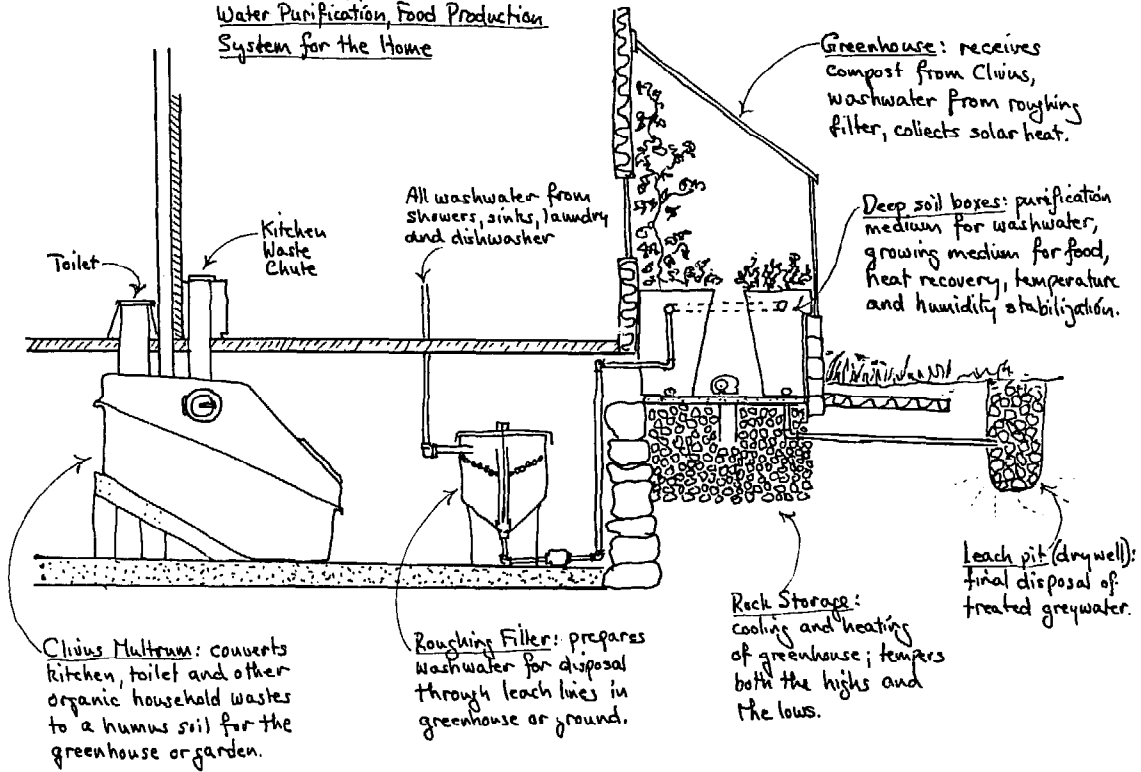 Water Purification, Food Production
System for the Home
Greenhouse: receives
compost from Clivus,
washwater from roughing
filter, collects solar heat.
All washwater from
showers, sinks, laundry
and dishwasher
Deep soil boxes: purification
medium for washwater,
growing medium for food,
heat recovery, temperature
and humidity stabilization.
Kitchen
Waste
Chute
Toilet
Leach pit (drywell):
final disposal of
treated greywater.
Rock Storage:
cooling and heating
of greenhouse; tempers
both the highs and
the lows.
Roughing Filter: prepares
washwater for disposal
through leach lines in
greenhouse or ground.
Clivus Multrum: converts
kitchen, toilet and other
organic household wastes
to a humus soil for the
greenhouse or garden.